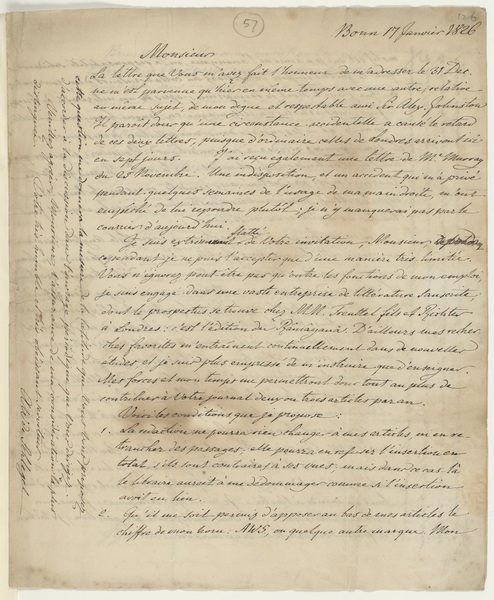 57
126
Bonn 17 Janvier 1826
Monsieur
La lettre que Vous m'avez fait l'honneur de m'adresser le 31 Dec.
ne m'est parvenue qu'hier en même temps avec une autre, relative
au même sujet, de mon digne et respectable ami Sir Alex. Johnston
Il paroit donc qu'une circonstance accidentelle a causé le retard
de ces deux lettres, puisque d'ordinaire celles de Londres arrivent ici
en sept jours. J'ai reçu également une lettre de Mr Murray
du 25 Novembre. Une indisposition, et un accident qui m'a privé
pendant quelques semaines de l'usage de ma main droite, m'ont
empêché de lui répondre plutôt; je n'y manquerai pas par le
courier d'aujourd'hui.
Je suis extrêmement flatté de Votre invitation, Monsieur,
cependant je ne puis l'accepter que d'une manière très limitée.
Vous n'ignorez peut être pas qu'outre les fonctions de mon emploi
je suis engagé dans une vaste entreprise de littérature sanscrite,
dont le prospectus se trouve chez M.M. Treuttel fils et Richter
à Londres: c'est l'édition du Râmâyana. D'ailleurs mes recher
ches favorites m'entrainent continuellement dans de nouvelles
études et je suis plus empressé de m'instruire que d'enseigner.
Mes forces et mon temps me permettront donc tout au plus de
contribuer à Votre journal deux ou trois articles par an.
Voici les conditions que je propose:
1. La rédaction ne pourra rien changer à mes articles, ni en re-
trancher des passages, elle pourra en refuser l'insertion en
total, s'ils sont contraires à ses vues: mais dans ce cas là
le libraire auroit à me dédommager comme si l'insertion
avoit eu lieu.
2. Qu'il me soit permis d'apposer au bas de mes articles le
chiffre de mon nom: AWS, ou quelque autre marque. Mon
cette question me donnera la mesure de la latitude que Vous Vous proposez
d'accorder à la discussion dans l'ouvrage périodique que Vous dirigez.
Veuillez agréer, Monsieur, l'assurance d'une considération la plus
distinguée. Votre très humble et très obéissant serviteur